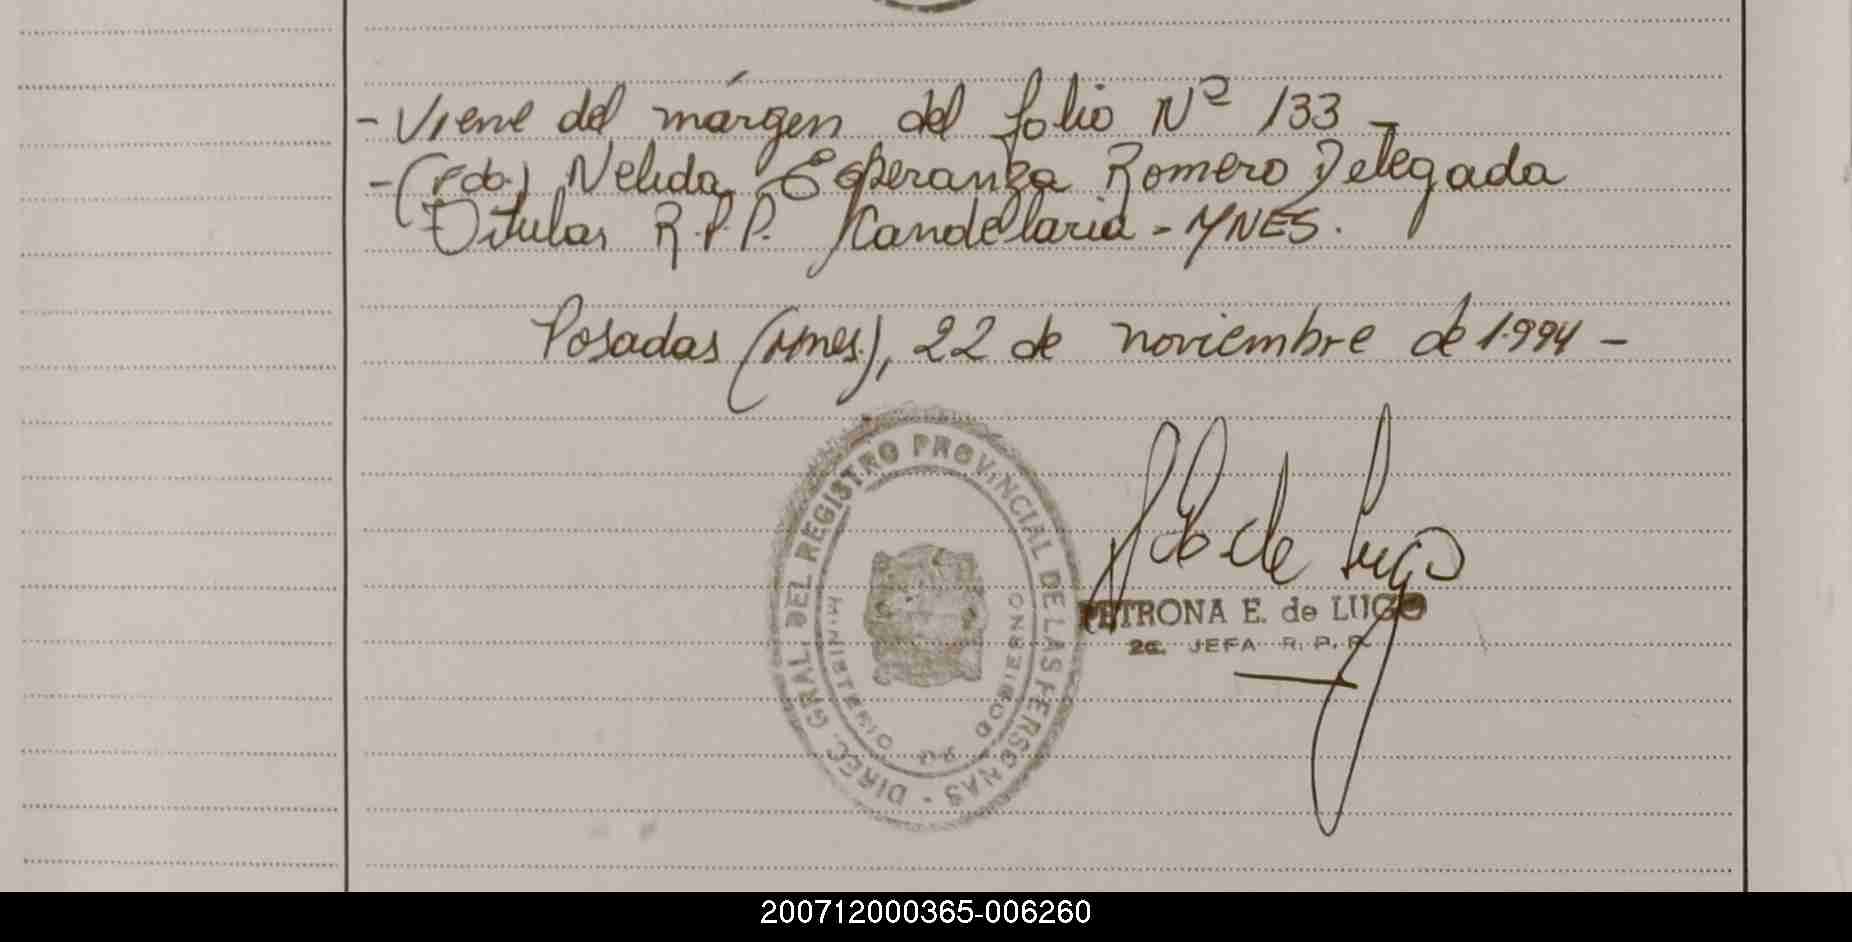 - Viene del márgen del folio Nº 133 -
- (Fdo.) Nelida Esperanza Romero Delegada
Titular R.P.P. Candelaria - MNES.
Posadas (Mnes.), 22 de noviembre de 1.994 -
DIREC. GRAL. DEL REGISTRO PROVINCIAL DE LAS PERSONAS -
MINISTERIO DE GOBIERNO
de Lugo
PETRONA E. de LUGO
2a. JEFA R. P. P.
200712000365-006260